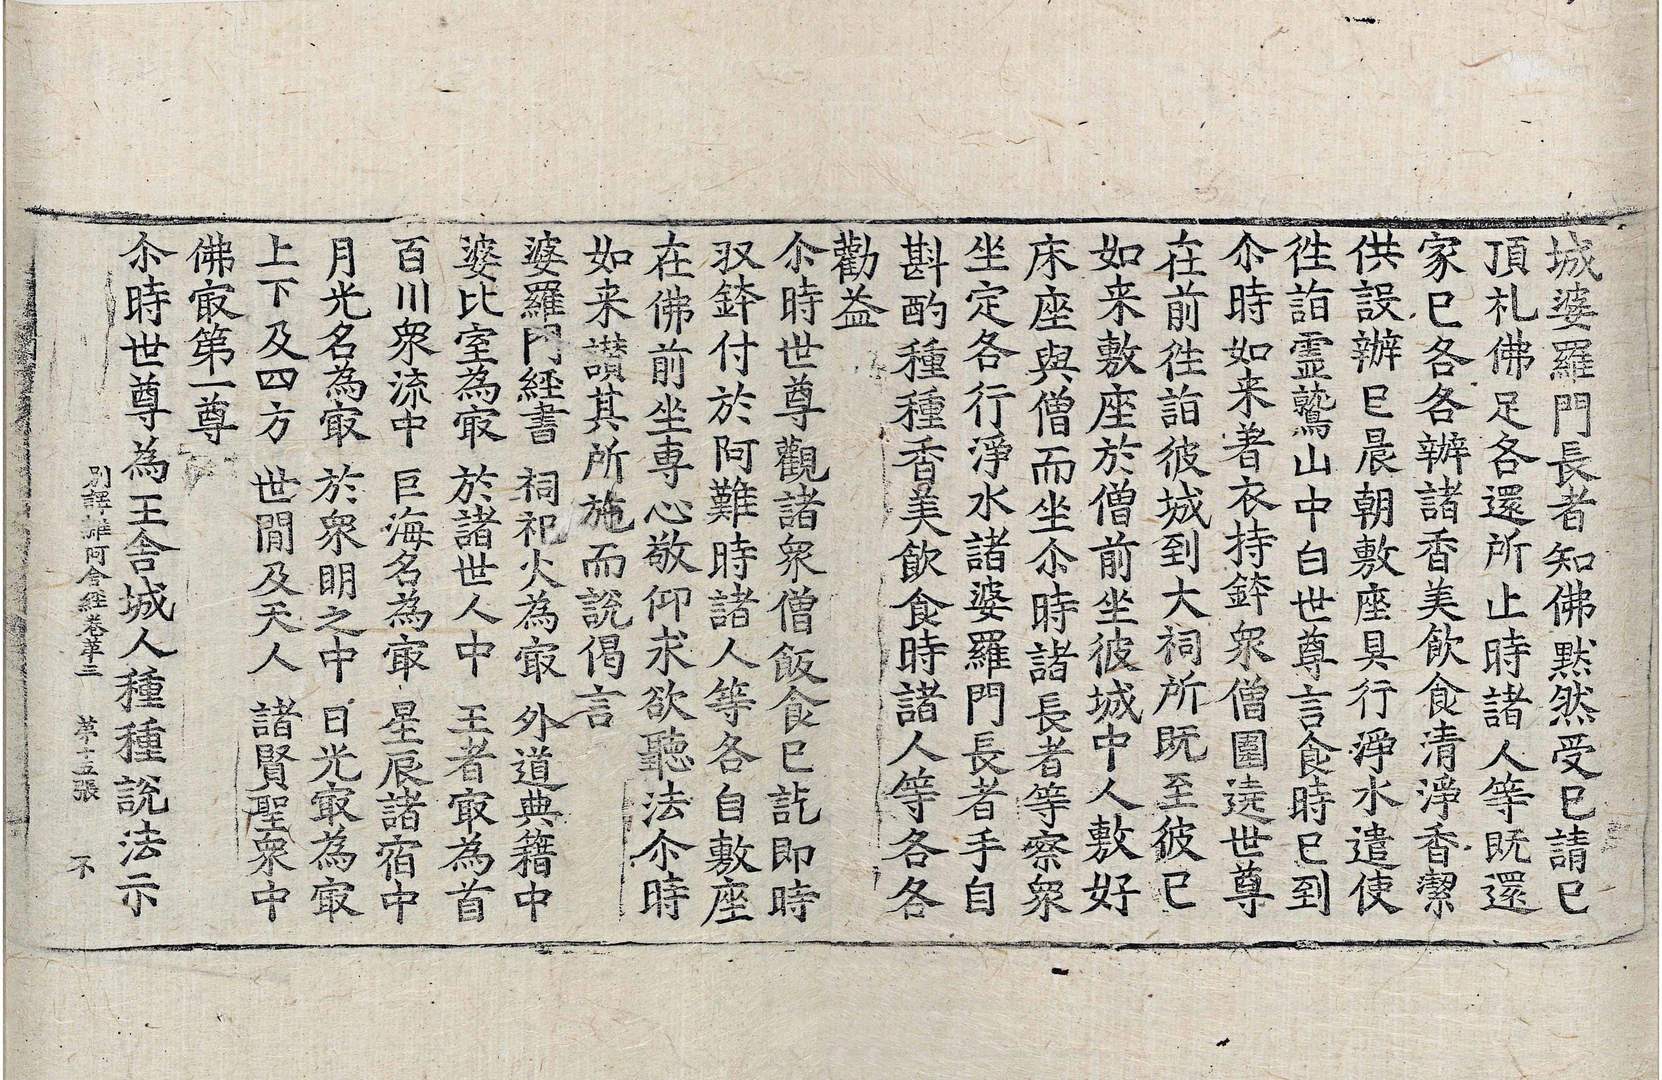 城婆羅門長者知佛黙然受已請已
頂礼佛足各還所止時諸人等既還
家已各各辦諸香美飲食清淨香潔
供設辦已晨朝敷座具行淨水遣使
徃詣霊鷲山中白世尊言食時已到
尒時如来著衣持鉢衆僧圍遶世尊
在前徃詣彼城到大祠所既至彼已
如来敷座於僧前坐彼城中人敷好
床座與僧而坐尒時諸長者等察衆
坐定各行淨水諸婆羅門長者手自
斟酌種種香美飲食時諸人等各各
勸益
尒時世尊觀諸衆僧飯食已訖即時
収鉢付於阿難時諸人等各自敷座
在佛前坐専心敬仰求欲聽法尒時
如来讃其所施而說偈言
婆羅門経書 祠祀火為㝡 外道典籍中
婆比室為㝡 於諸世人中 王者㝡為首
百川衆流中 巨海名為㝡 星辰諸宿中
月光名為㝡 於衆明之中 日光㝡為㝡
上下及四方 世間及天人 諸賢聖衆中
佛㝡第一尊
尒時世尊為王舎城人種種說法示
別譯雜阿含経卷苐三 苐十五張 不